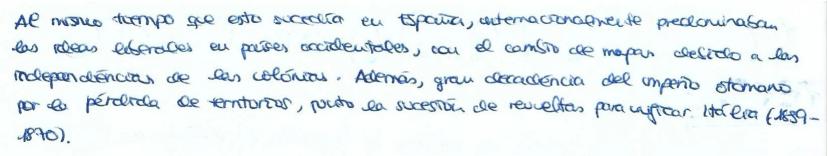 Al mismo tiempo que esto sucedía en España, internacionalmente predominaban
las ideas liberales en países occidentales, con el cambio de mapas debido a las
independéncias de las colónias. Además, gran decadéncia del imperio otomano
por la pérdida de territorios, junto la sucesión de revueltas para unificar Itália (1859-
1870).